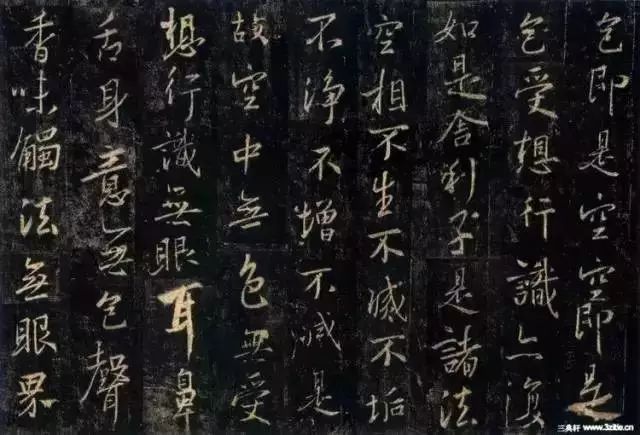 色即是空空即是
色受想行識亦復
如是舍利子是諸法
空相不生不滅不垢
不淨不增不減是
故空中無色無受
想行識無眼耳鼻
舌身意無色聲
香味觸法無眼界
三奥轩 www.3zitie.cn